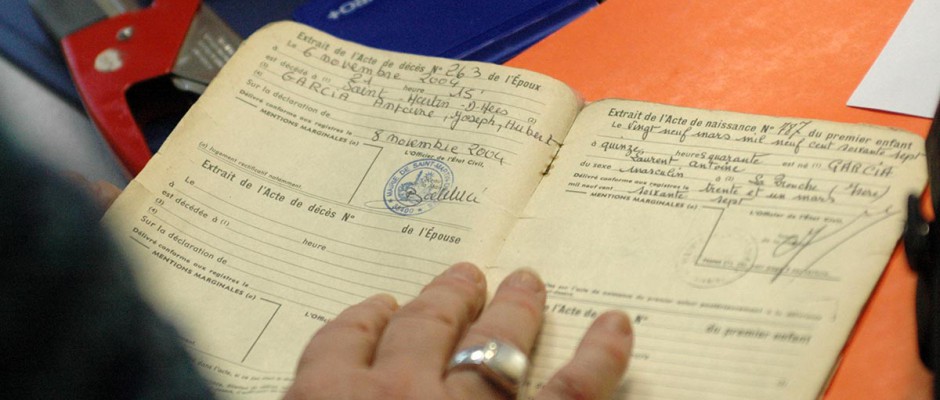 Extrait de l'Acte de décès N° 263 de l'Époux
Le 6 novembre 2004
à 21 heure 15
est décédé à (1) Saint Martin-D'Hères
(2) GARCIA Antoine, Joseph, Hubert
Sur la déclaration de
Délivré conforme aux registres le 8 novembre 2004
MENTIONS MARGINALES (a)
L'Officier de l'État Civil,
(a) Jugement rectificatif notamment.
Extrait de l'Acte de décès N°
de l'Épouse
Le
à heure
est décédée à (1)
(2)
(3)
Sur la déclaration de
Délivré conforme aux registres le
MENTIONS MARGINALES (a)
L'Offic
Extrait de l'Acte de naissance N° 187 du premier enfant
Le vingt neuf mars mil neuf cent soixante sept
à quinze heures quarante est né (1) GARCIA
Laurent Antoine
du sexe masculin à (2) La Tronche (Isère)
Délivré conforme aux registres le trente et un mars
mil neuf cent soixante sept
MENTIONS MARGINALES (a)
L'Officier de l'État Civil,
l'Acte de naissance N°
du premier enfant